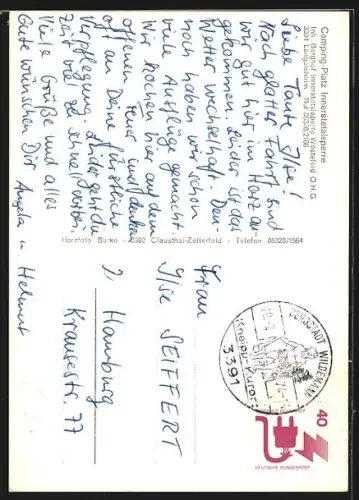 Camping-Platz Innerstetalsperre
Inh. Berghof Innerstetalsperre Wiesefeld O.H.G.
3394 Langelsheim - Ruf 05326/2166
Liebe Tante Ilse!
Nach glatter Fahrt sind
wir gut hier im Harz an-
gekommen. Leider ist das
Wetter wechselhaft. Den-
noch haben wir schon
viele Ausflüge gemacht.
Wir kochen hier auf dem
offenen Feuer und denken
oft an Deine fürstliche
Verpflegung. Leider geht die
Zeit viel zu schnell vorbei.
Viele Grüße und alles
Gute wünschen Dir Angela u. Helmut
Harzfoto Burke - 3392 Clausthal-Zellerfeld - Telefon 05323/1564
BERGSTADT WILDEMANN
Kneipp-Kurort
3391
40
DEUTSCHE BUNDESPOST
Frau
Ilse SEIFFERT
2 Hamburg
Krausestr. 77